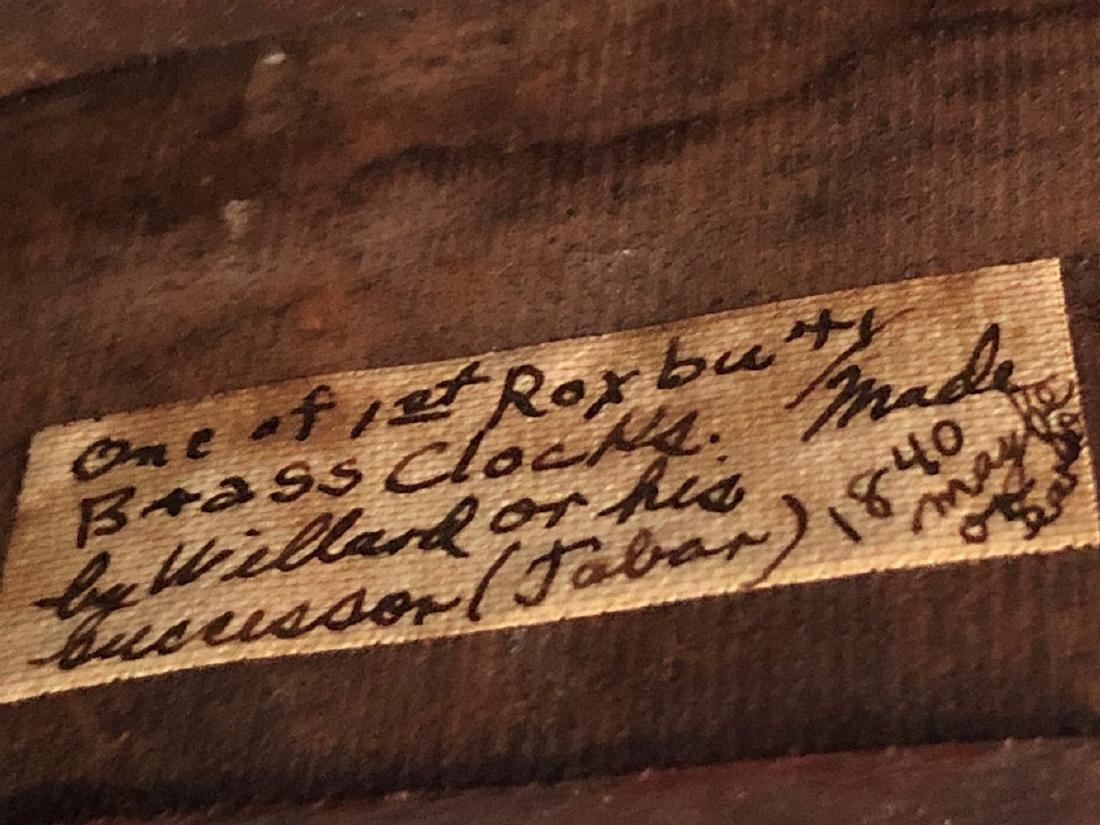 One of 1st Roxbury
Brass Clocks. Made
by Willard or his
Successor (Tabar) 1840
may be
or